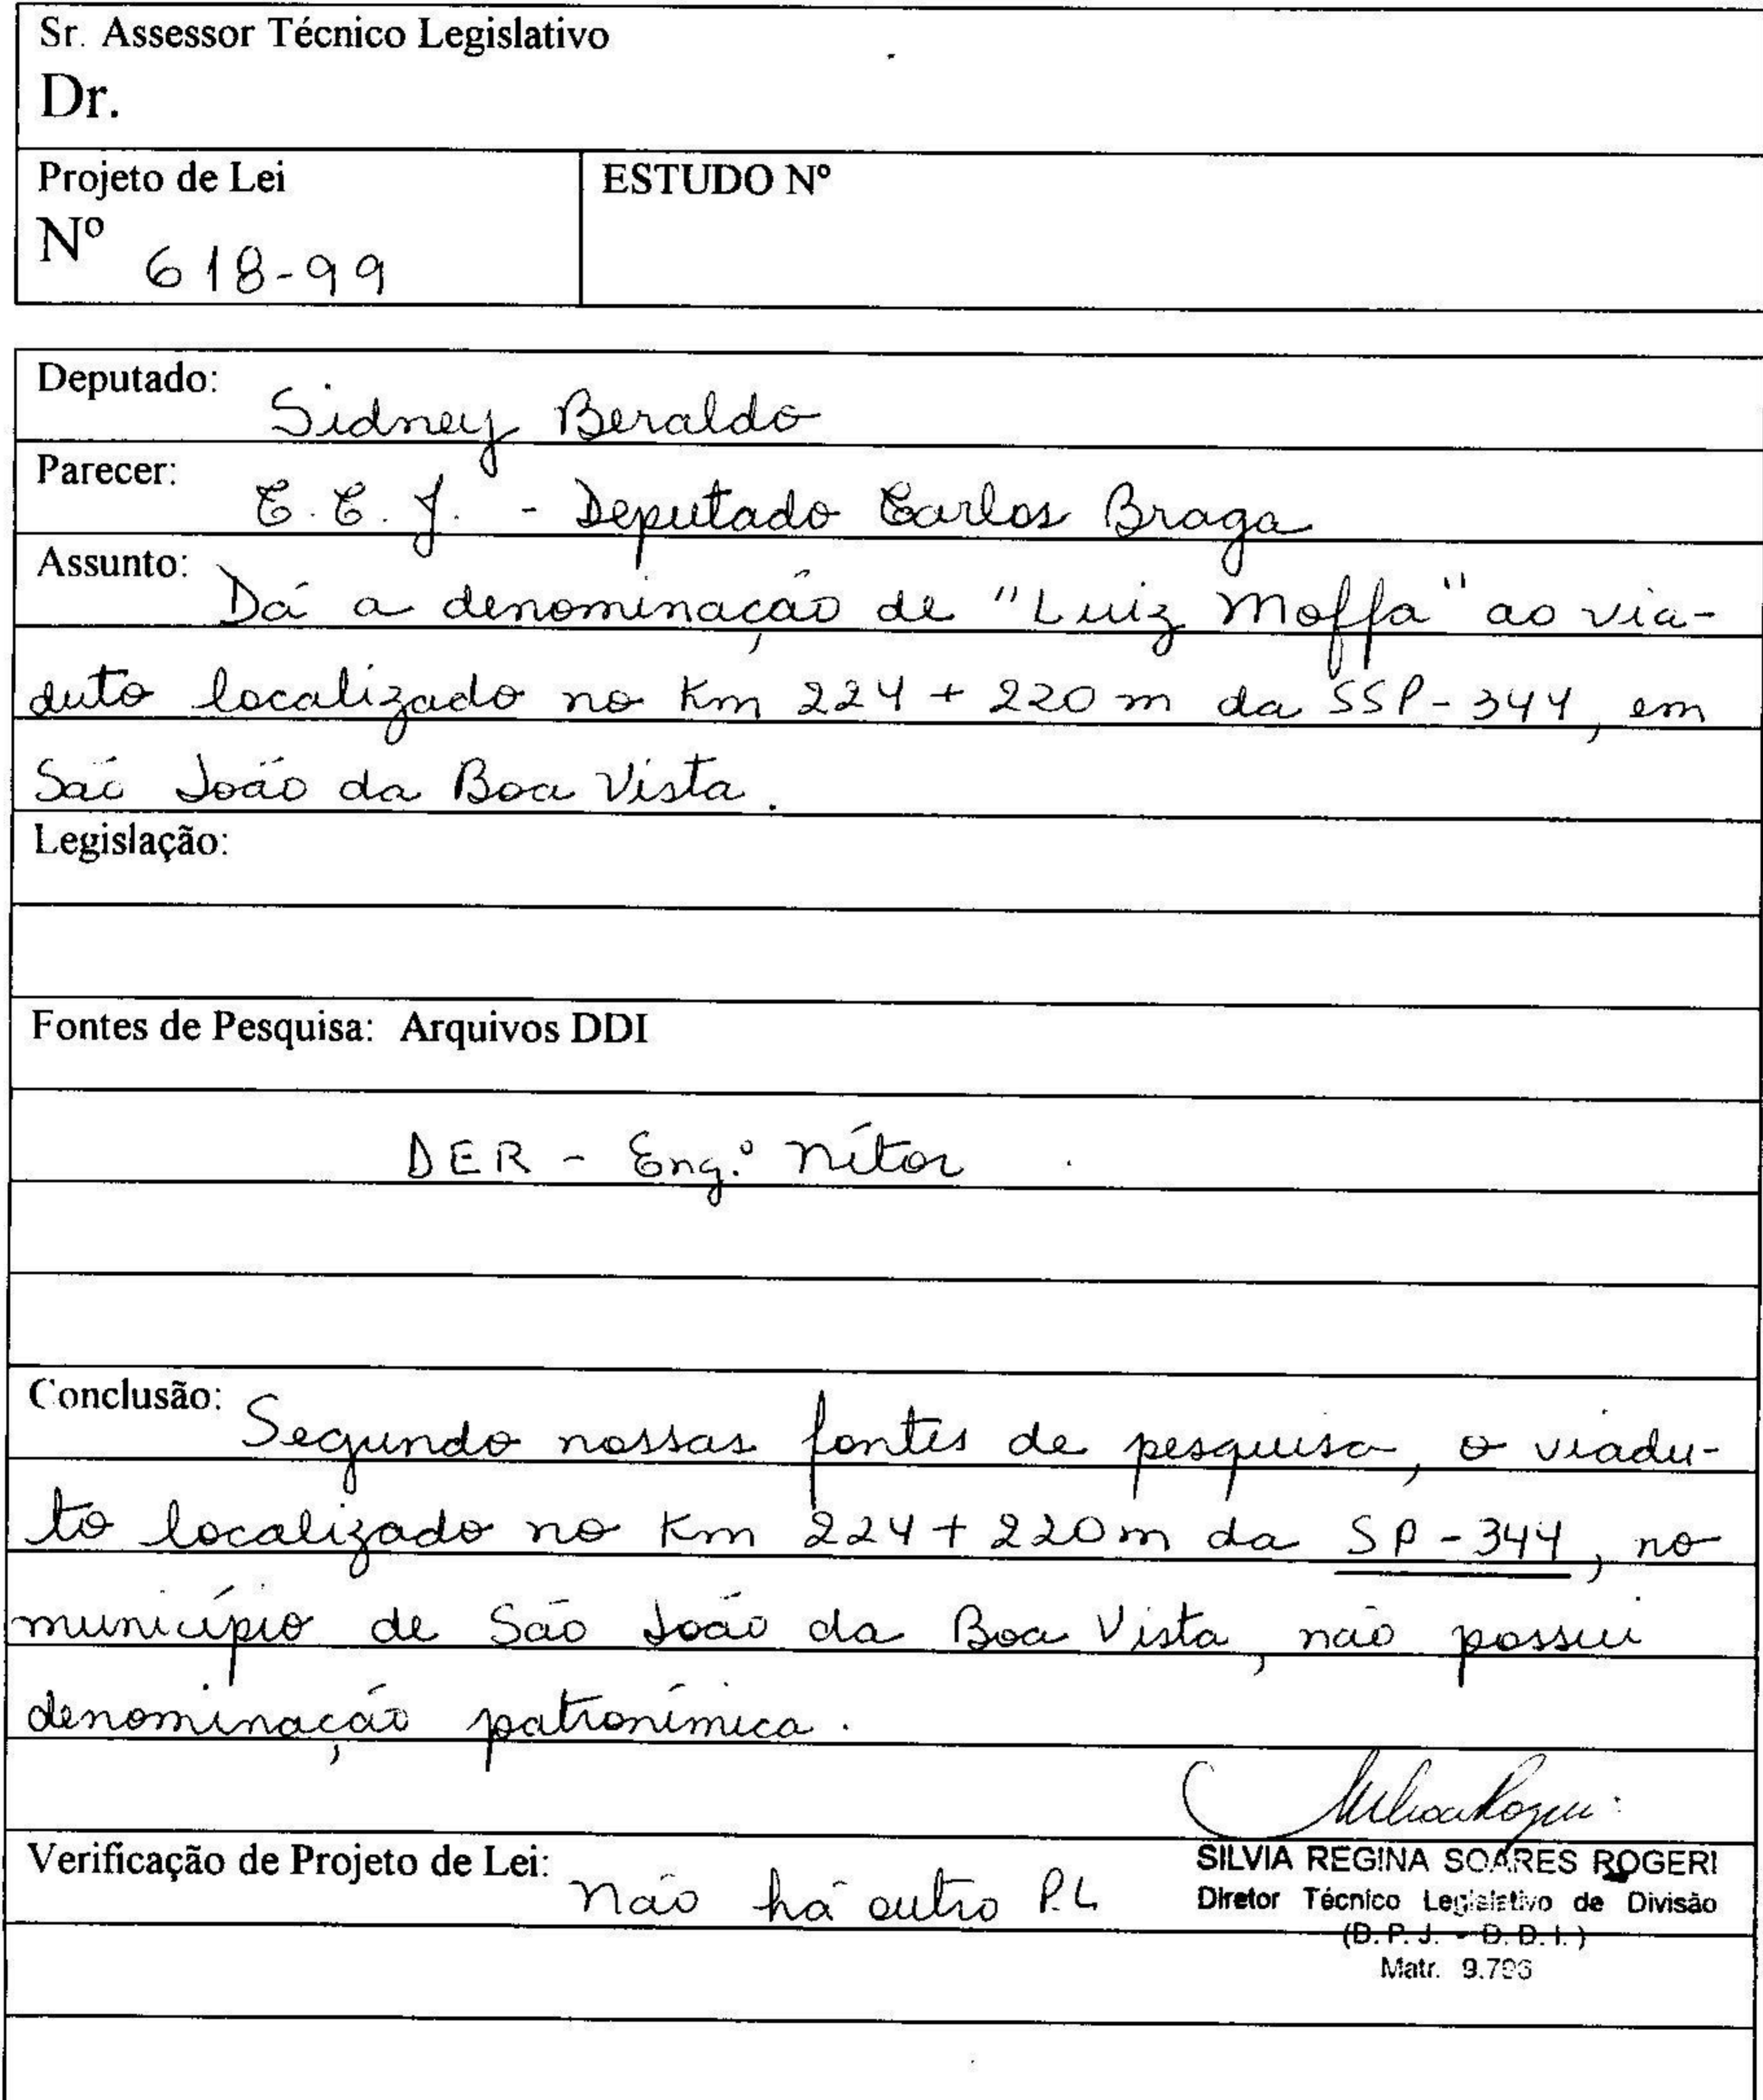 Sr. Assessor Técnico Legislativo
Dr.
Projeto de Lei
Nº 618-99
ESTUDO Nº
Deputado: Sidney Beraldo
Parecer: C.C.J. - Deputado Carlos Braga
Assunto: Dá a denominação de "Luiz Moffa" ao via-
duto localizado no Km 224 + 220 m da SSP-344, em
São João da Boa Vista.
Legislação:
Fontes de Pesquisa: Arquivos DDI
DER - Eng.º Nítor
Conclusão: Segundo nossas fontes de pesquisa, o viadu-
to localizado no Km 224 + 220m da SP-344, no
município de São João da Boa Vista, não possui
denominação patronímica.
Verificação de Projeto de Lei: não há outro P.L
SILVIA REGINA SOARES ROGERI
Diretor Técnico Legislativo de Divisão
(D.P.J. - D.D.I.)
Matr.